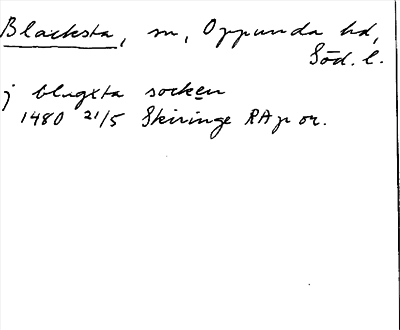 Blacksta, sn, Oppunda hd,
Söd. l.
j blugxta socken
1480 21/5 Skiringe RAp or.